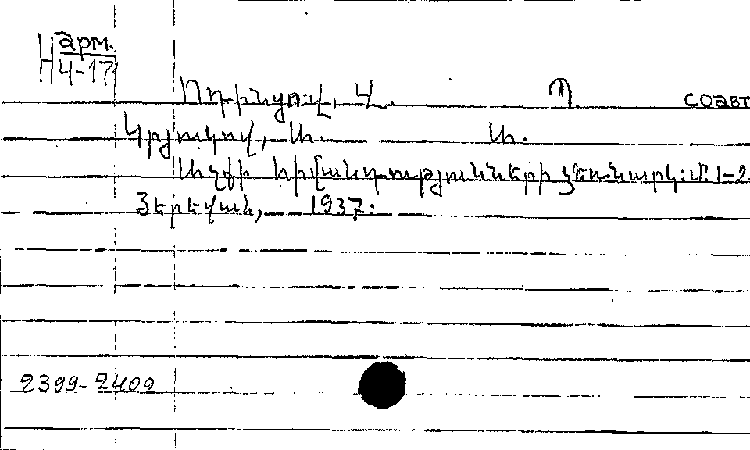 Н арм.
4-17
Ռոդինցուլ, Վ. Պ. соавт
Կրյուկով, Ա. Ա.
Աչքի հիվանդությունների ձեռնարկ: Մ. 1-2
Յերեվան, 1937:
2399-2400